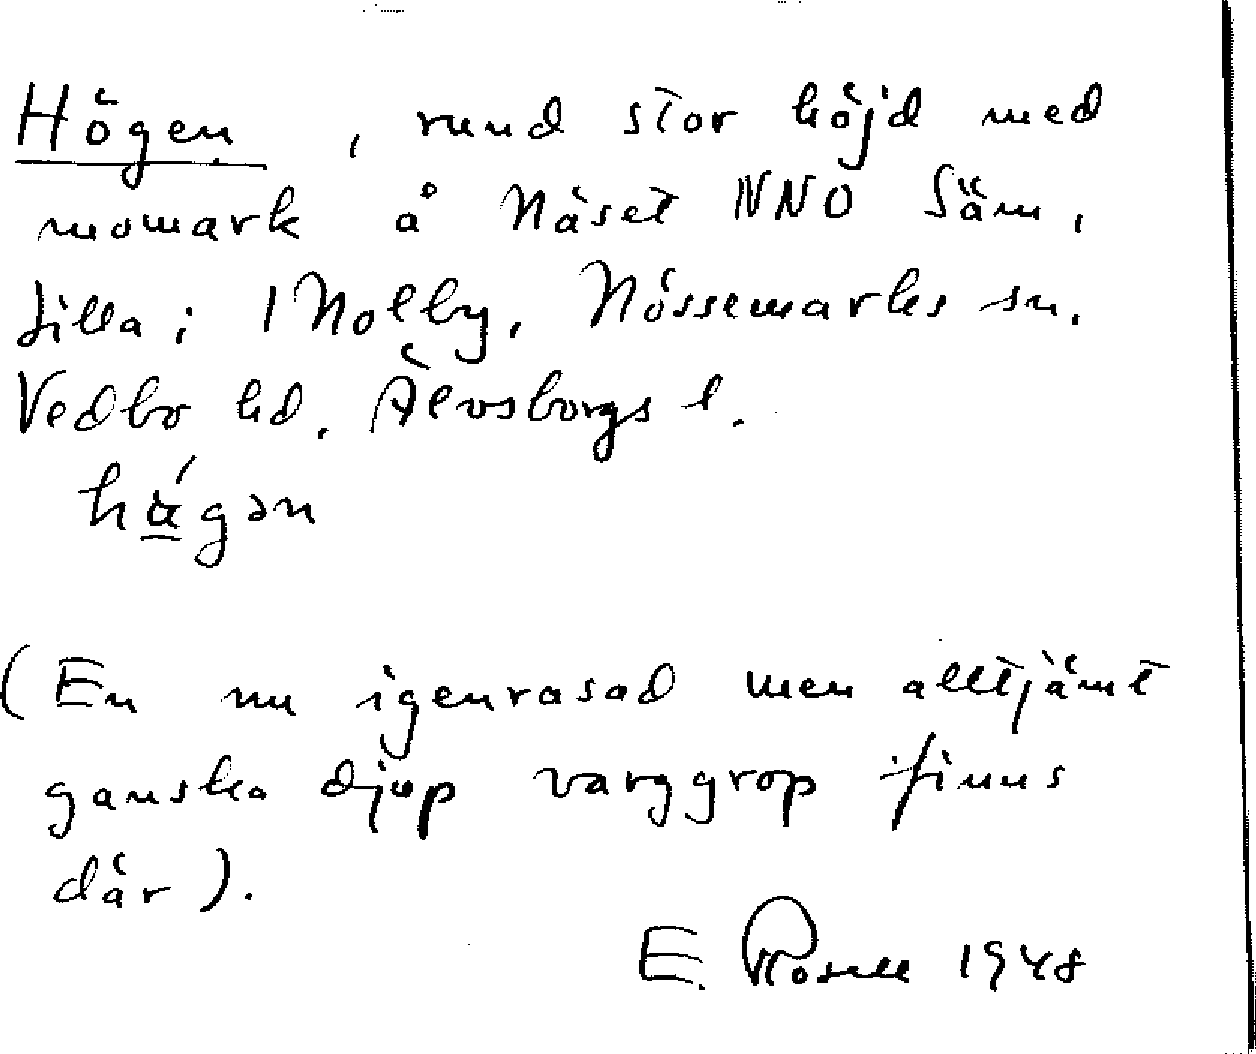 Högen, rund stor höjd med
momark å Näset NNO Säm,
Lilla; 1 Nolby, Nössemarks sn.
Vedbo hd. Älvsborgs l.
hǻgən
(En nu igenrasad men alltjämt
ganska djup varggrop finns
där).
E. Rosell 1948